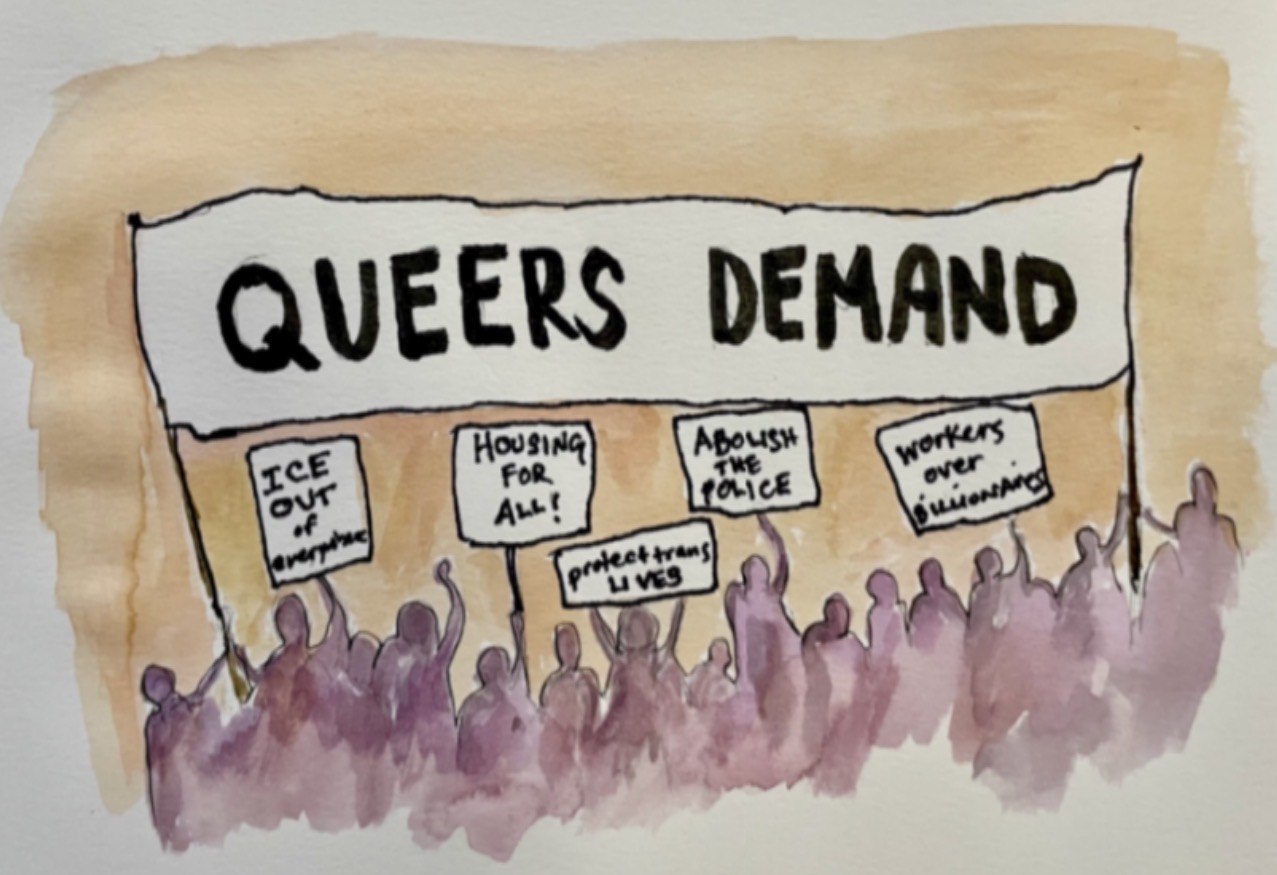 QUEERS DEMAND
ICE
OUT
of
everywhere
HOUSING
FOR
ALL!
protect trans
LIVES
ABOLISH
THE
POLICE
Workers
over
Billionaires